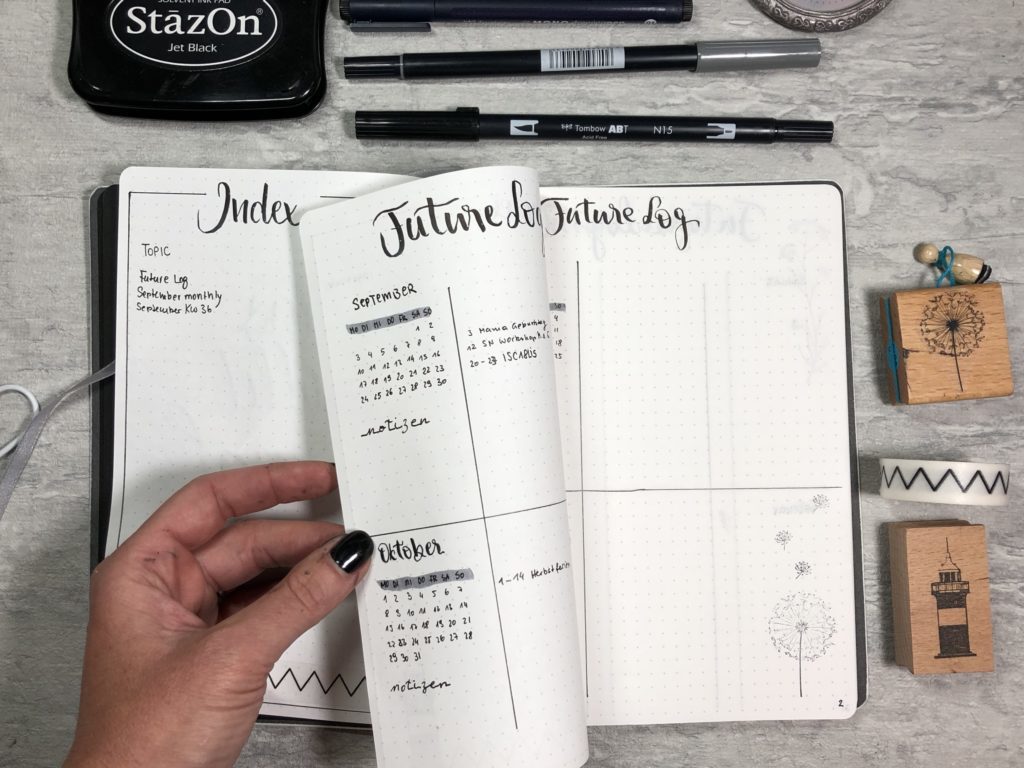 SOLVENT INK PAD
StãzOn
Jet Black
Tombow ABT N15
Acid Free
Index
TOPIC
Future Log
September monthly
September KW 36
Future Lo
SEPTEMBER
MO DI MI DO FR SA SO
1 2
3 4 5 6 7 8 9
10 11 12 13 14 15 16
17 18 19 20 21 22 23
24 25 26 27 28 29 30
notizen
3 Mama Geburtstag
12 SN Workshop
20-23
Oktober
MO DI MI DO FR SA SO
1 2 3 4 5 6 7
8 9 10 11 12 13 14
15 16 17 18 19 20 21
22 23 24 25 26 27 28
29 30 31
notizen
1-14 Herbstferien
Future Log
SO
4
11
18
25
2